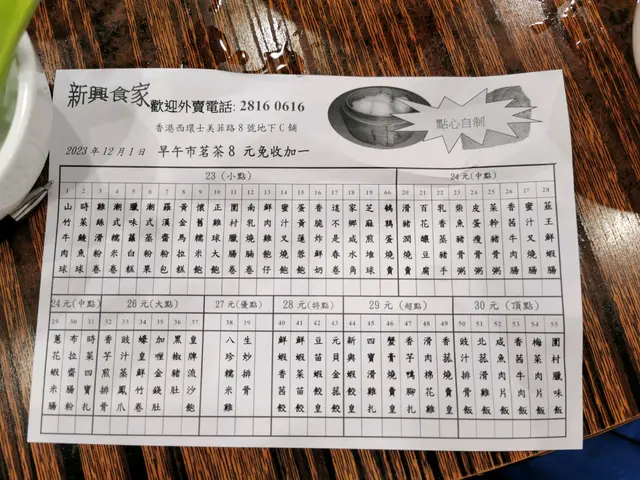 新興食家 歡迎外賣電話: 2816 0616
香港西環士美菲路 8 號地下 C 舖
點心自制
2023 年 12 月 1 日 早午市茗茶 8 元免收加一
23 (小點)
24 元(中點)
1 山竹牛肉球
2 時菜鯪魚球
3 雞絲滑粉卷
4 潮式糯米卷
5 臘味蘿白糕
6 潮式蒸粉果
7 羅漢齋粉包
8 黃金馬拉糕
9 懷舊糯米飽
10 正雞球大飽
11 圍村臘腸卷
12 南乳臘腸卷
13 鮮肉雞飽仔
14 蜜汁叉燒飽
15 蛋黃蓮蓉飽
16 香脆炸鮮奶
17 這不是春卷
18 家鄉咸水角
19 芝麻煎堆球
20 滑豬潤燒賣
21 百花釀豆腐
22 乳香蒸豬手
23 柴魚豬骨粥
24 皮蛋瘦肉粥
25 菜幹豬骨粥
26 香茜牛肉腸
27 蜜汁叉燒腸
28 韮王鮮蝦腸
24 元(中點)
26 元(大點)
27 元(優點)
28 元(特點)
29 元(超點)
30 元(頂點)
29 蔥花蝦米腸
30 布拉齋腸粉
31 時菜四寶扎
32 香芋煎排骨
33 豉汁蒸鳳爪
34 蠔皇鮮竹卷
35 加喱金錢肚
36 黑椒豬肚
37 皇牌流沙飽
38 八珍糯米雞
39 生炒排骨
40 鮮蝦香茜餃
41 鮮蝦菜苗餃
42 豆苗蝦餃皇
43 元貝金菰餃
44 新興蝦餃皇
45 四寶滑雞扎
46 蟹膏燒賣皇
47 香芋鴨腳扎
48 滑肉棉花雞
49 香菇燒賣皇
50 豉汁排骨飯
51 北菰滑雞飯
52 咸魚肉片飯
53 香茜牛肉飯
54 梅菜肉片飯
55 圍村臘味飯